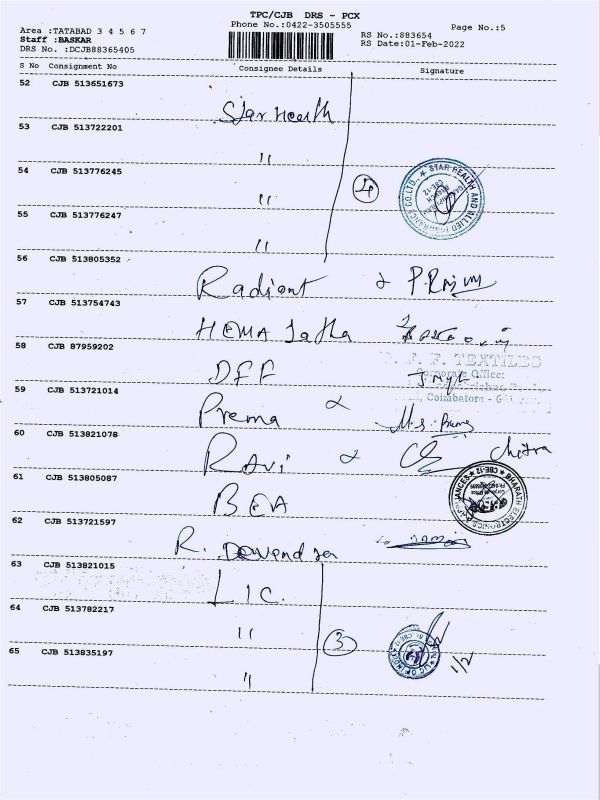 TPC/CJB DRS - PCX
Area :TATABAD 3 4 5 6 7 Phone No.:0422-3505555 Page No.:5
Staff :BASKAR RS No.:883654
DRS No. :DCJB88365405 RS Date:01-Feb-2022
S No Consignment No Consignee Details Signature
52 CJB 513651673
Star Health
53 CJB 513722201
"
54 CJB 513776245
" 4 STAR HEALTH AND ALLIED INSURANCE CO.LTD.
55 CJB 513776247
"
56 CJB 513805352
Radiant
57 CJB 513754743
HEMA Latha
58 CJB 87959202
DFF D. F. F. TEXTILES
Corporate Office:
Coimbatore -
59 CJB 513721014
Prema
60 CJB 513821078
Ravi Chitra
61 CJB 513805087
BEA BHARATH ELECTRONICS CBE-12
62 CJB 513721597
R. Devendran
63 CJB 513821015
LIC.
64 CJB 513782217
" 3 1/2
65 CJB 513835197
"